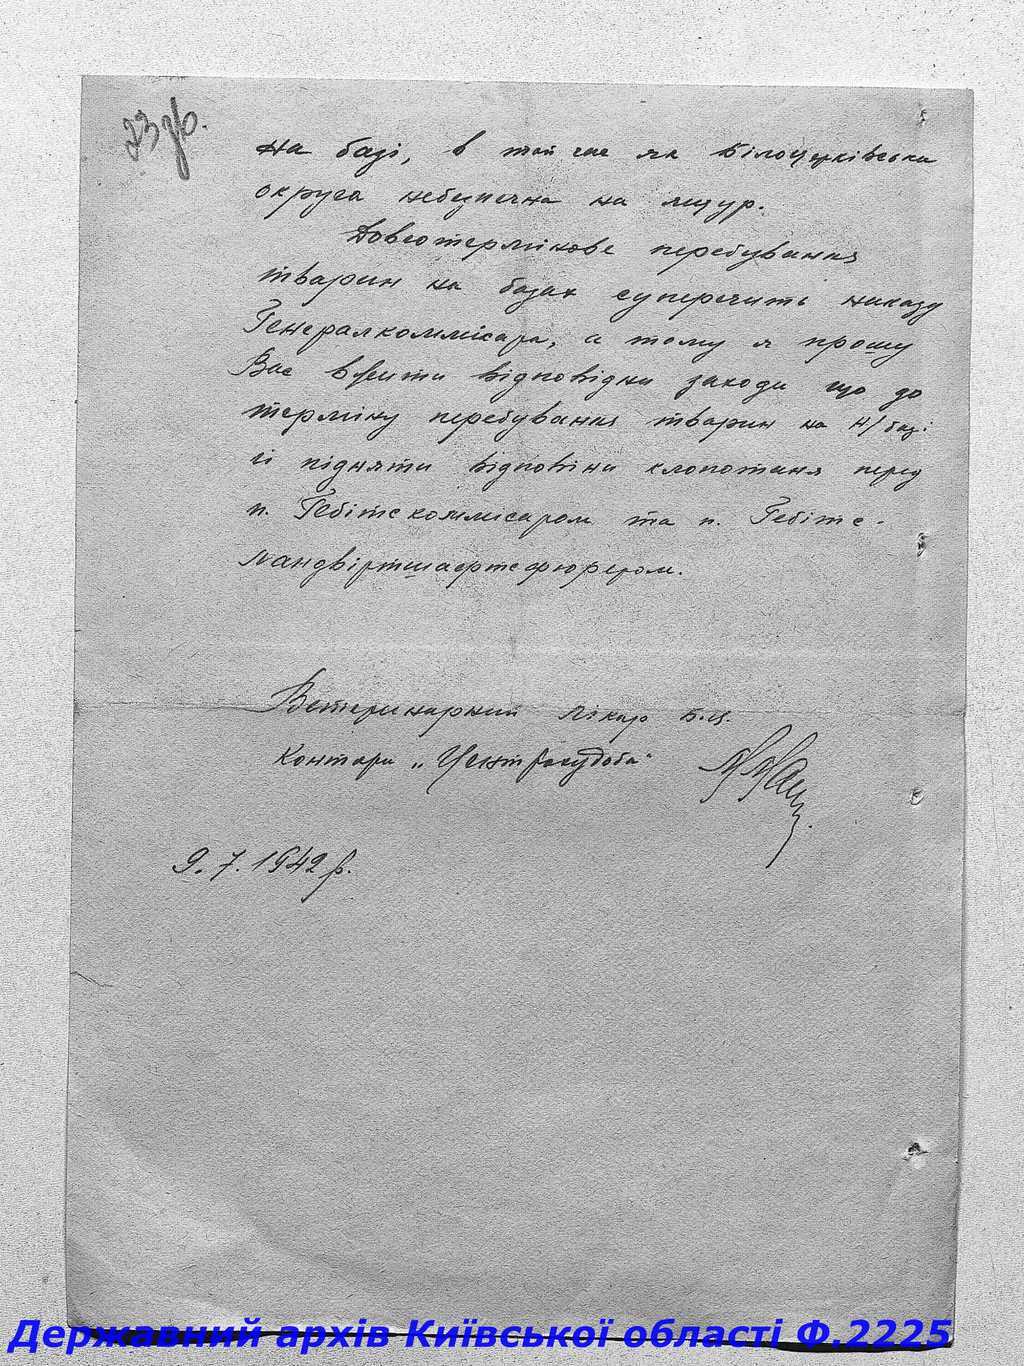 23 зв.
на базі, в той час як Білоцерківська
округа небезпечна на ящур.
Довготермінове перебування
тварин на базах суперечить наказу
Генералкоммісара, а тому я прошу
Вас вжити відповідни заходи що до
терміну перебування тварин на н/базі
й підняти відповіни клопотаня перед
п. Гебітскоммісаром та п. Гебітс-
ландвіртшафтсфюрером.
Ветеринарний лікар Б.Ц.
Контори „Центрхудоба"
9.7.1942 р.
Державний архів Київської області Ф.2225